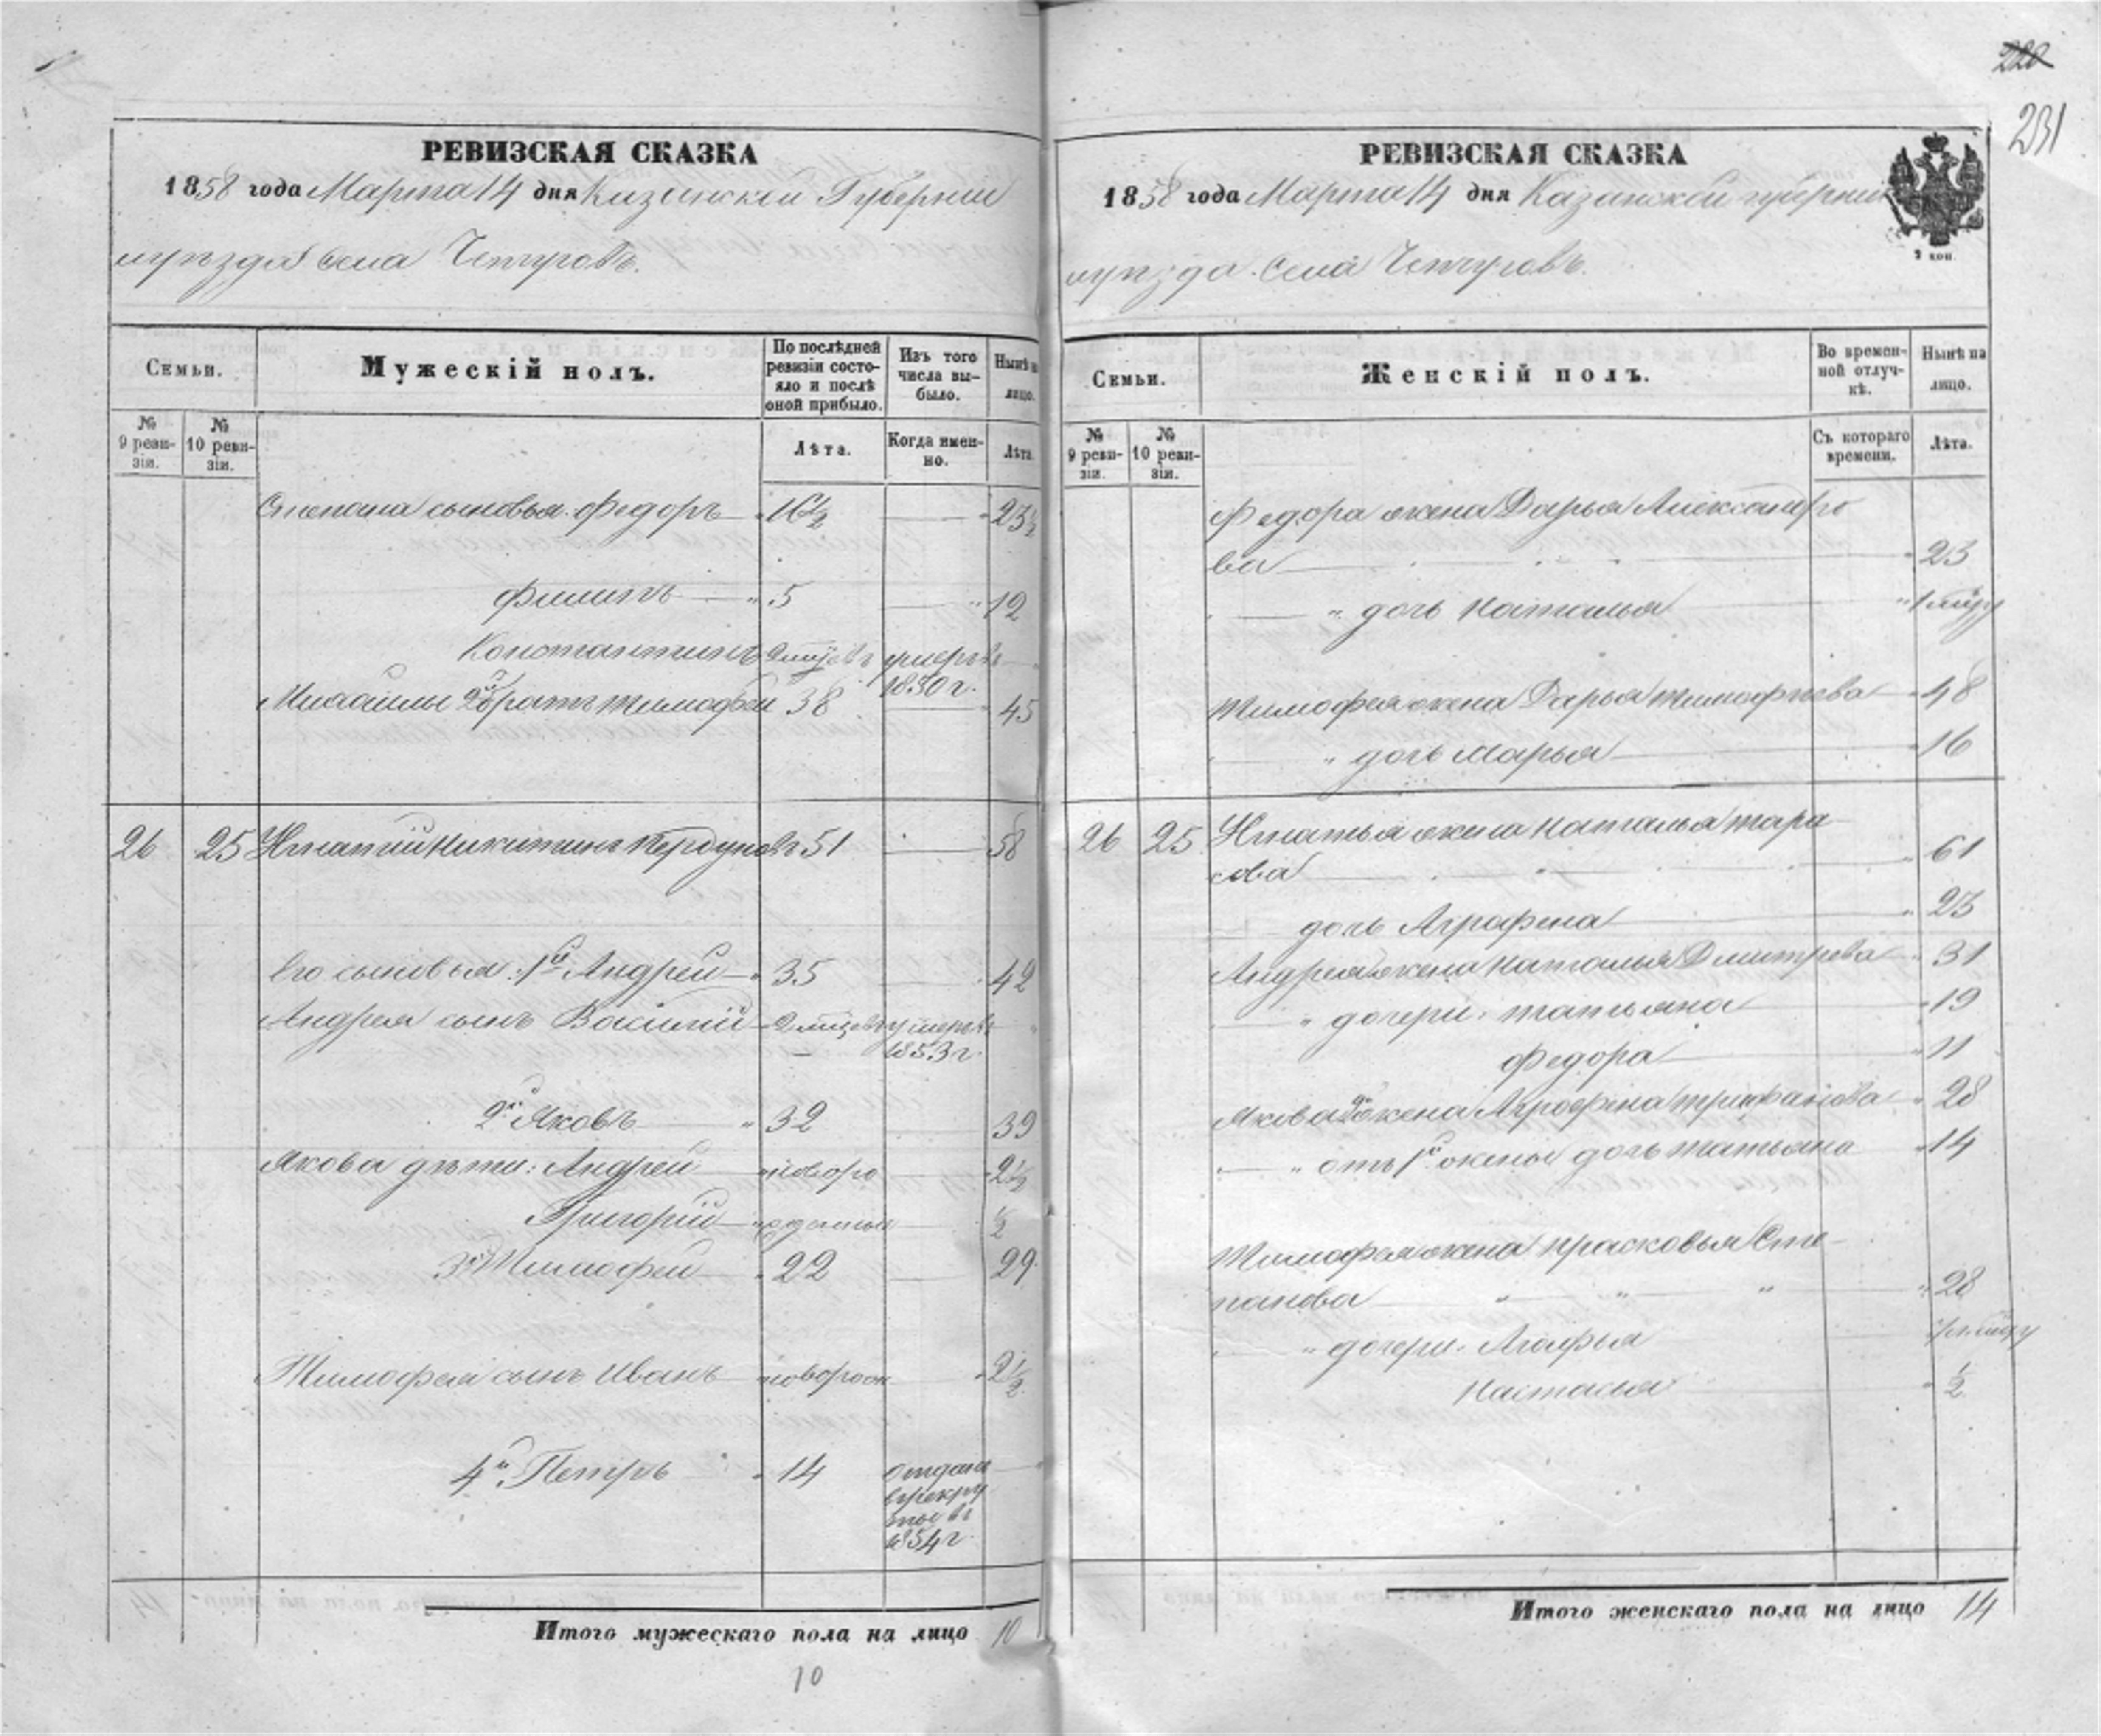 220
231
РЕВИЗСКАЯ СКАЗКА
1858 года Марта 14 дня Казанской Губернии
уѣзда села Чепчуговъ.
Семьи.
Мужескій полъ.
По послѣдней ревизіи состояло и послѣ оной прибыло.
Изъ того числа выбыло.
Нынѣ на лицо.
№ 9 ревизіи.
№ 10 ревизіи.
Лѣта.
Когда именно.
Лѣта.
Степана сыновья. Федоръ 16½ 23½
Филипъ 5 12
Константинъ умеръ въ 1850 г.
Михайлы 2й братъ Тимофей 38 45
26 25 Игнатий Никитинъ 51 58
Его сыновья: 1й Андрей 35 42
Андрея сынъ Василий умеръ въ 1853 г.
2й Яковъ 32 39
Якова дѣти: Андрей новоро 2½
Григорій жденные ½
3й Тимофей 22 29
Тимофея сынъ Иванъ 2½
4й Петръ 14 отданъ в рекруты въ 1854 г.
Итого мужескаго пола на лицо 10
10
РЕВИЗСКАЯ СКАЗКА
1858 года Марта 14 дня Казанской губернии
уѣзда села Чепчуговъ.
Семьи.
Женскій полъ.
Во временной отлучкѣ.
Нынѣ на лицо.
№ 9 ревизіи.
№ 10 ревизіи.
Съ котораго времени.
Лѣта.
Федора жена Дарья Александро
ва 23
" дочь Наталья
Тимофея жена Дарья Тимофѣева 48
" дочь Марья 16
26 25 Игнатья жена Наталья Тара
сова 61
дочь Аграфена 23
Андрея жена Наталья Дмитрева 31
" дочери: Татьяна 19
Федора 11
Якова 2я жена Аграфена Трифанова 28
" отъ 1й жены дочь Татьяна 14
Тимофея жена Прасковья Сте-
панова 28
" дочери: Агафья
Настасья ½
Итого женскаго пола на лицо 14